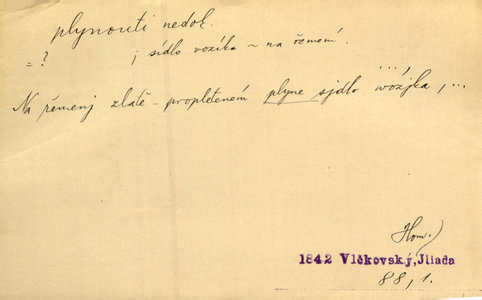 plynouti nedok.
= ? ; sídlo vozíka ~ na řemení.
Na řemenj zlatě-propleteném plyne sjdlo wózjka, ...
Hom.)
1842 Vlčkovský, Jliada
88, 1.